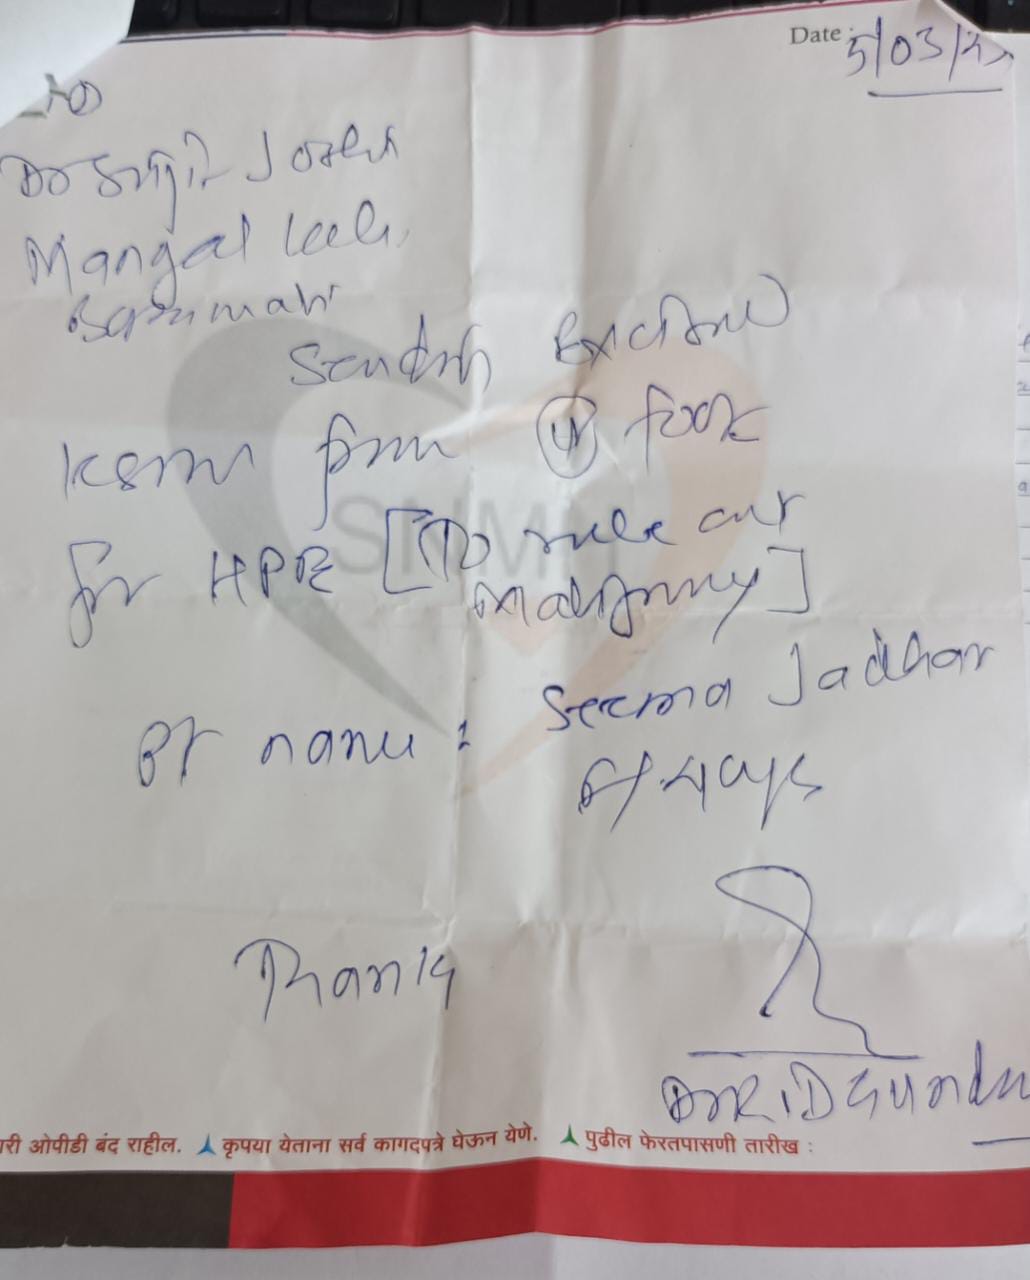 Date : 5/03/2
To
Dr Sujit Joshi
Mangal Lab,
Baramati
Sending Excised
from foot
for HPE [To rule out
malignancy]
Pt name : Seema Jadhav
Thanks
SNMH
री ओपीडी बंद राहील. कृपया येताना सर्व कागदपत्रे घेऊन येणे. पुढील फेरतपासणी तारीख :